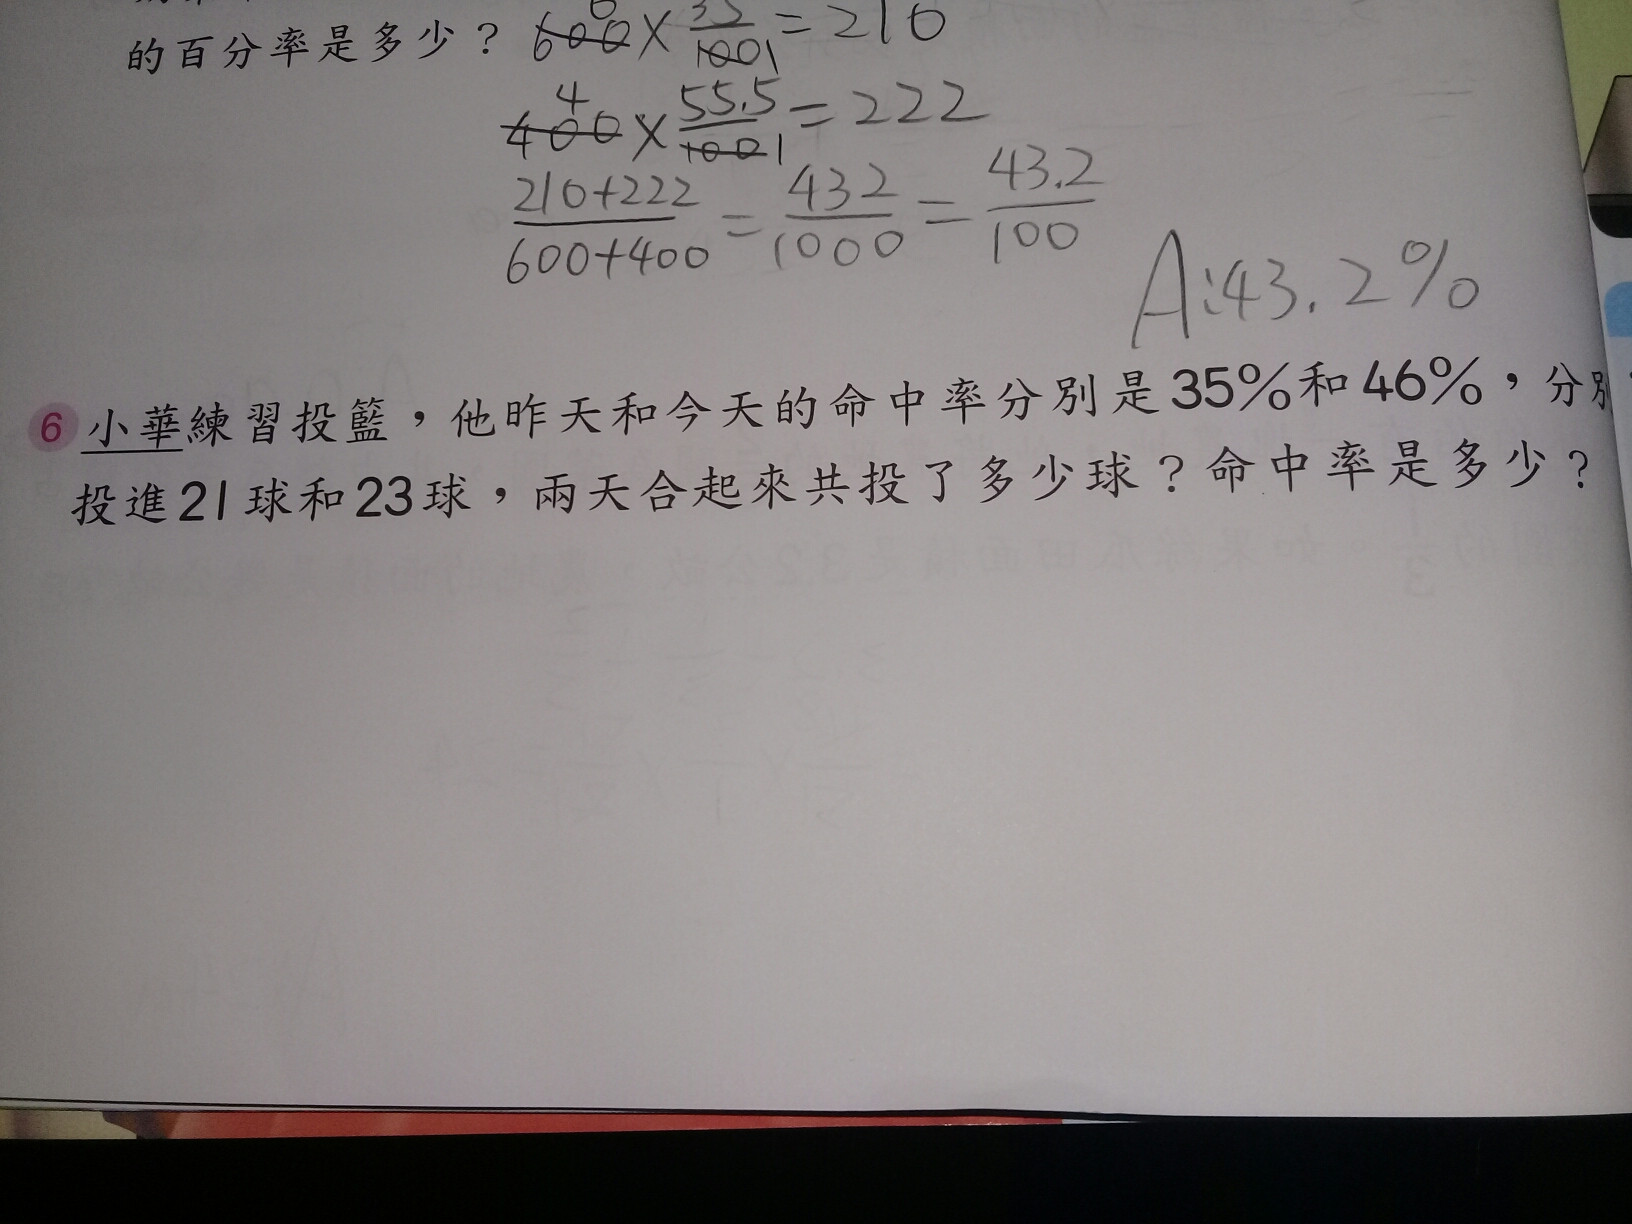 的百分率是多少？ 600 × 35/100 1 = 210
4
400 × 55.5/100 1 = 222
210+222/600+400 = 432/1000 = 43.2/100
A:43.2%
6 小華練習投籃，他昨天和今天的命中率分別是35%和46%，分別
投進21球和23球，兩天合起來共投了多少球？命中率是多少？